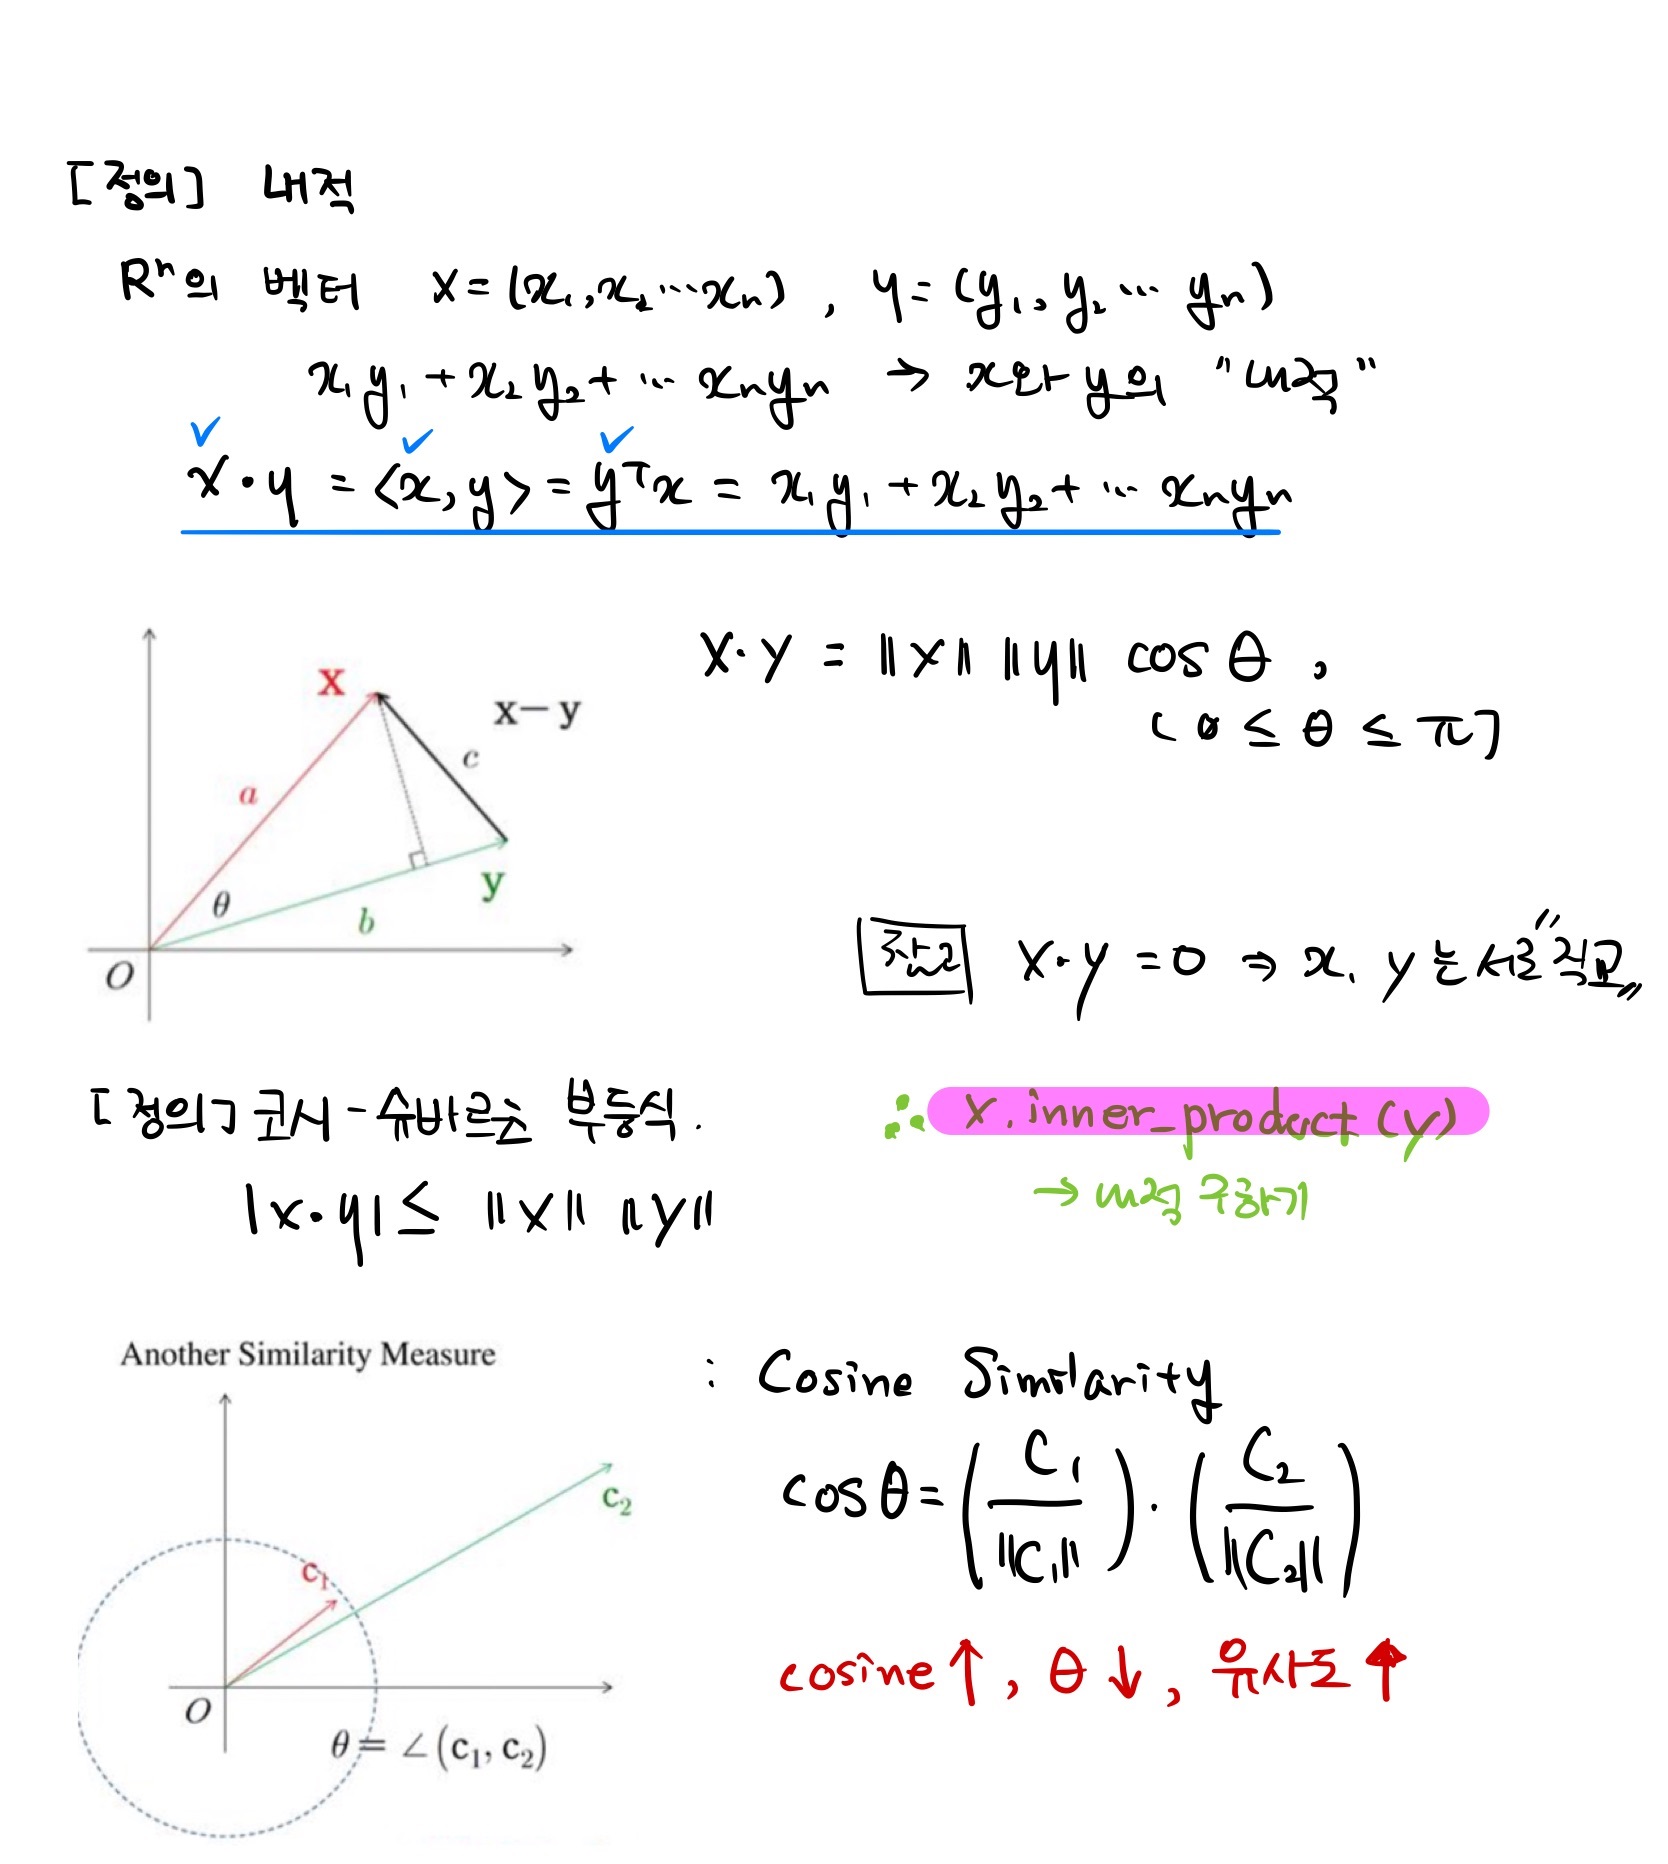 [정의] 내적
Rⁿ의 벡터 x = (x₁, x₂ ... xₙ) , y = (y₁, y₂ ... yₙ)
x₁y₁ + x₂y₂ + ... xₙyₙ → x와 y의 "내적"
x · y = <x, y> = yᵀx = x₁y₁ + x₂y₂ + ... xₙyₙ
x · y = ||x|| ||y|| cos θ ,
( 0 ≤ θ ≤ π ]
x
x − y
c
a
θ
b
y
O
참고 x · y = 0 ⇒ x, y는 서로 "직교"
[정의] 코시 - 슈바르츠 부등식.
|x · y| ≤ ||x|| ||y||
∴ x.inner_product (y)
→ 내적 구하기
Another Similarity Measure : Cosine Similarity
cos θ = (C₁ / ||C₁||) · (C₂ / ||C₂||)
cosine ↑, θ ↓, 유사도 ↑
c₂
c₁
O
θ = ∠(c₁, c₂)